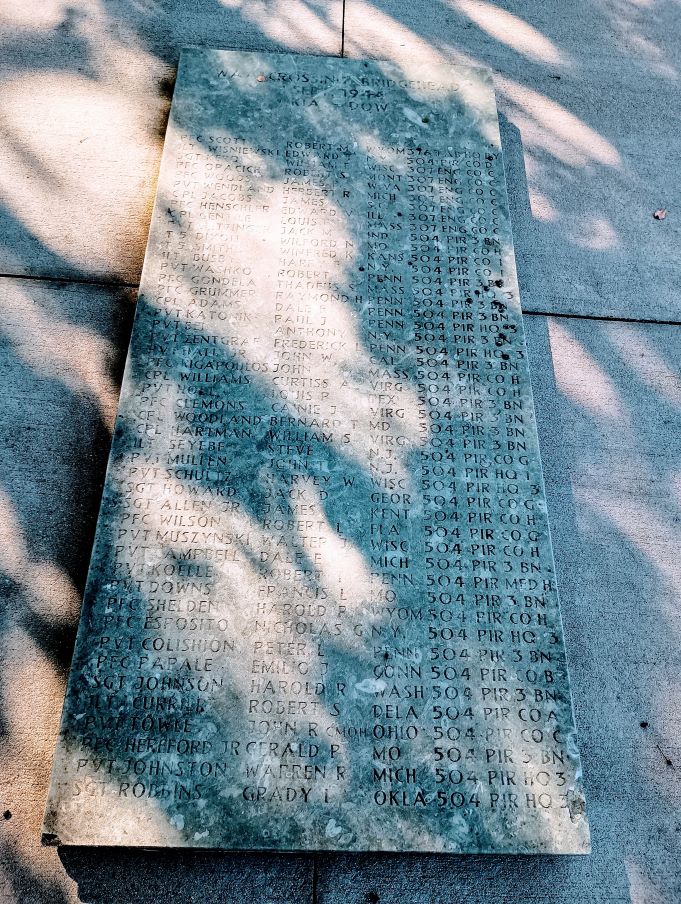 WAAL CROSSING & BRIDGEHEAD
SEPT 1944
KIA & DOW
PFC SCOTT ROBERT M WYOM
WISNIEWSKI EDWARD T N.Y. 504 PIR CO
SGT WILLIAM E WISC 307 ENG CO C
PFC OPACICK ROBERT S MONT 307 ENG CO C
PFC WOODS JAMES W VA 307 ENG CO C
PVT WENDLAND HERBERT R MICH 307 ENG CO C
CPL JACOBS JAMES 307 ENG CO C
PFC HENSCHLER EDWARD V ILL 307 ENG CO C
CPL GENSLE LOUIS MASS 307 ENG CO C
JACK M IND 504 PIR 3 BN
WILFORD N MO 504 PIR
SMITH WINFRED K KANS 504 PIR CO
1LT HARRY F N.Y. 504 PIR CO I
PVT WASHKO ROBERT PENN 504 PIR CO
PFC GONDELA MASS 504 PIR 3 BN
PFC GRUMMER RAYMOND H PENN 504 PIR HQ 3
CPL ADAMS DALE S PENN 504 PIR 3 BN
PVT KATONIK PAUL J PENN 504 PIR HQ
PVT ANTHONY N.Y. 504 PIR 3 BN
PVT ZENTGRAF FREDERICK L PENN 504 PIR HQ 3
PVT HALL JR JOHN W CAL 504 PIR 3 BN
RIGAPOULOS JOHN MASS 504 PIR CO H
CPL WILLIAMS CURTISS A VIRG 504 PIR CO H
PVT LOUIS P TEX 504 PIR 3 BN
PFC CLEMONS J VIRG 504 PIR 3 BN
CPL WOODLAND BERNARD T MD 504 PIR 3 BN
CPL HARTMAN WILLIAM S VIRG 504 PIR 3 BN
1LT SEYEBE STEVE N.J. 504 PIR CO G
PVT MULLEN JOHN T N.J. 504 PIR HQ 1
PVT SCHULTZ HARVEY W WISC 504 PIR HQ 3
SGT HOWARD JACK D GEOR 504 PIR CO G
SGT ALLEN JR JAMES KENT 504 PIR CO H
PFC WILSON ROBERT L FLA 504 PIR CO G
PVT MUSZYNSKI WALTER J WISC 504 PIR CO H
PVT CAMPBELL DALE E MICH 504 PIR 3 BN
PVT KOELLE ROBERT PENN 504 PIR MED H
PVT DOWNS FRANCIS L MO 504 PIR 3 BN
PFC SHELDEN HAROLD R WYOM 504 PIR CO H
PFC ESPOSITO NICHOLAS G N.Y. 504 PIR HQ 3
PVT COLISHION PETER L PENN 504 PIR 3 BN
PFC PAPALE EMILIO J CONN 504 PIR CO B
SGT JOHNSON HAROLD R WASH 504 PIR 3 BN
1LT CURRIER ROBERT S DELA 504 PIR CO A
PVT TOWLE JOHN R CMOH OHIO 504 PIR CO C
PFC HEREFORD JR GERALD P MO 504 PIR 3 BN
PVT JOHNSTON WARREN R MICH 504 PIR HQ 3
SGT ROBBINS GRADY L OKLA 504 PIR HQ 3